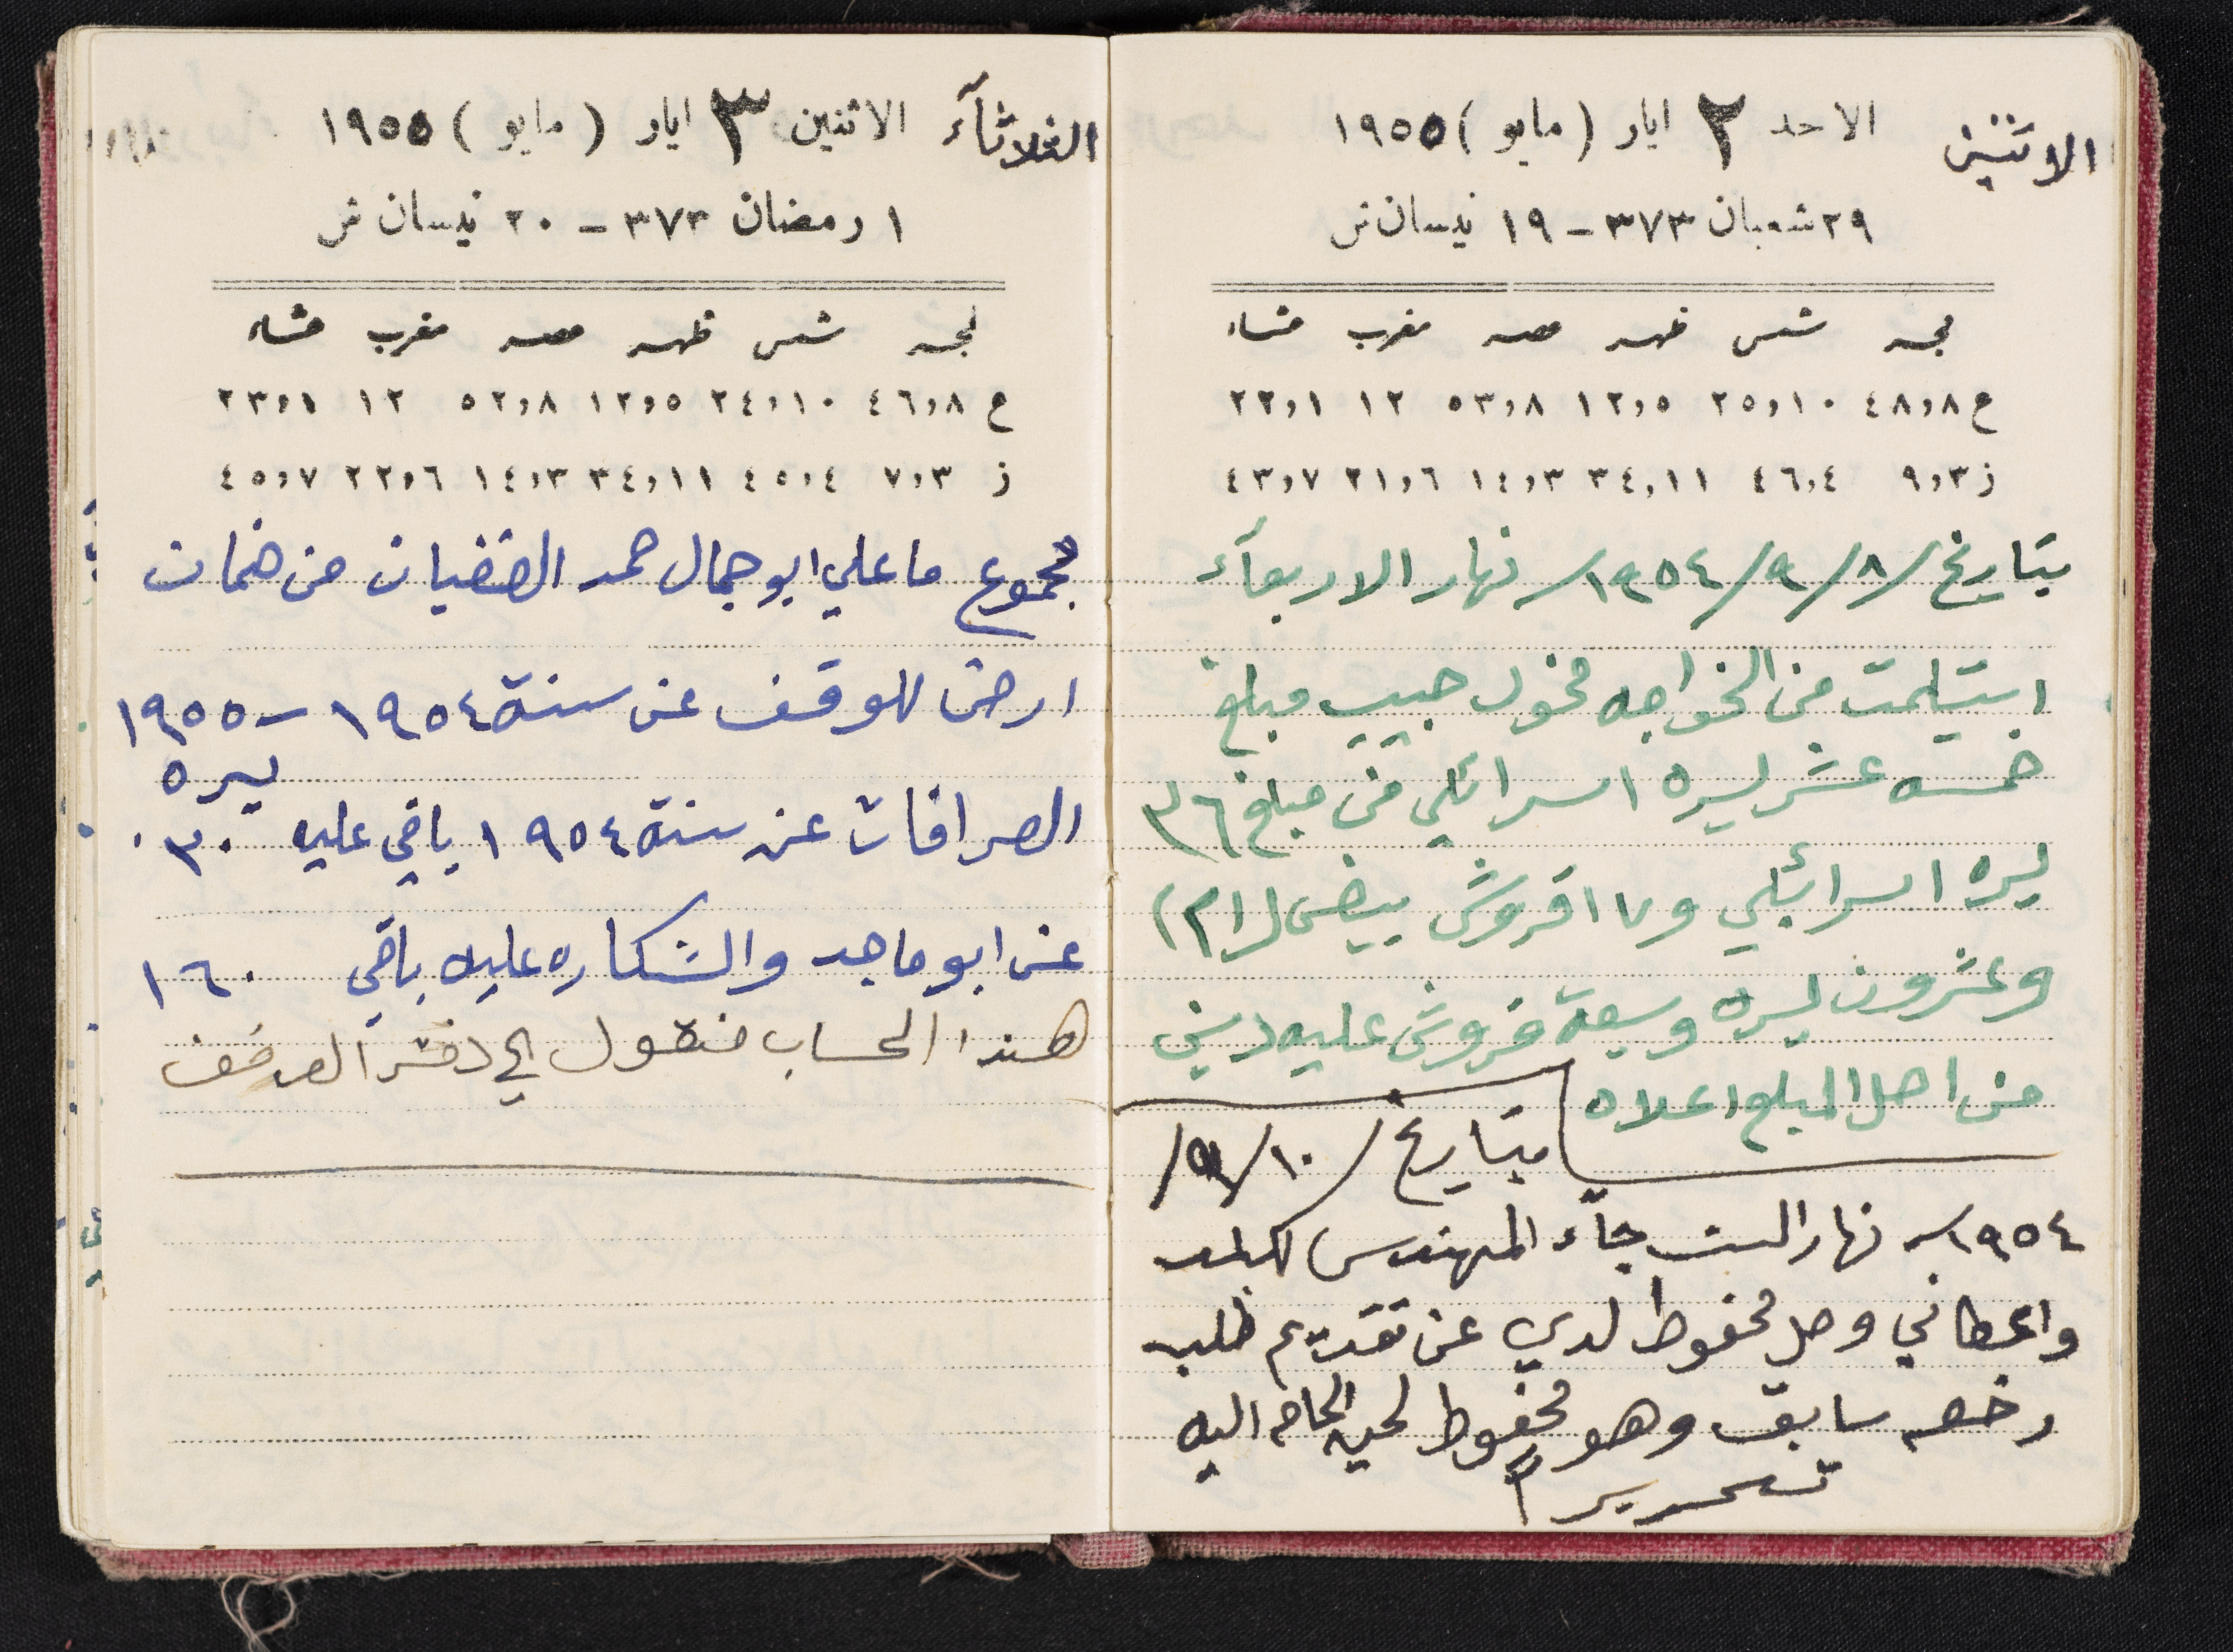 الاثنين
الاحد ٢ ايار (مايو) ١٩٥٥
٢٩ شعبان ٣٧٣ – ١٩ نيسان ش
فجر شمس ظهر عصر مغرب عشاء
ع ٤٨,٨ ٢٥,١٠ ١٢,٥ ٥٣,٨ ١٢ ٢٢,١
ز ٩,٣ ٤٦,٤ ٣٤,١١ ١٤,٣ ٢١,٦ ٤٣,٧
بتاريخ /٨/٩/١٩٥٤ نهار الاربعآء
استلمت من الخواجه مخول حبيب مبلغ
خمسه عشر ليره اسرائلي من مبلغ ٣٦
ليره اسرائيلي و٧ اقروش يبيض
وعشرون ليره وسبعة قروش عليه ديني
من اصل المبلغ اعلاه
بتاريخ /١٠/٩/
١٩٥٤ نهار السبت جآء المهندس للبلد
واعطاني وصل محفوظ لدي عن تقديم طلب
رخصه سابق وهو محفوظ لحين الحاجه اليه
تحريراً
الثلاثآء
الاثنين ٣ ايار (مايو) ١٩٥٥
١ رمضان ٣٧٣ – ٢٠ نيسان ش
فجر شمس ظهر عصر مغرب عشاء
ع ٤٦,٨ ٢٤,١٠ ١٢,٥ ٥٢,٨ ١٢ ٢٣,١
ز ٧,٣ ٤٥,٤ ٣٤,١١ ١٤,٣ ٢٢,٦ ٤٥,٧
مجموع ما علي ابو جمال حمد من ضمان
ارض الوقف عن سنة ١٩٥٤ – ١٩٥٥
ليره
الصرافات عن سنة ١٩٥٤ باقي عليه ٣٠
عن ابو ماجد والشكاره عليه باقي ١٦٠
هذا الحساب منقول الى دفتر